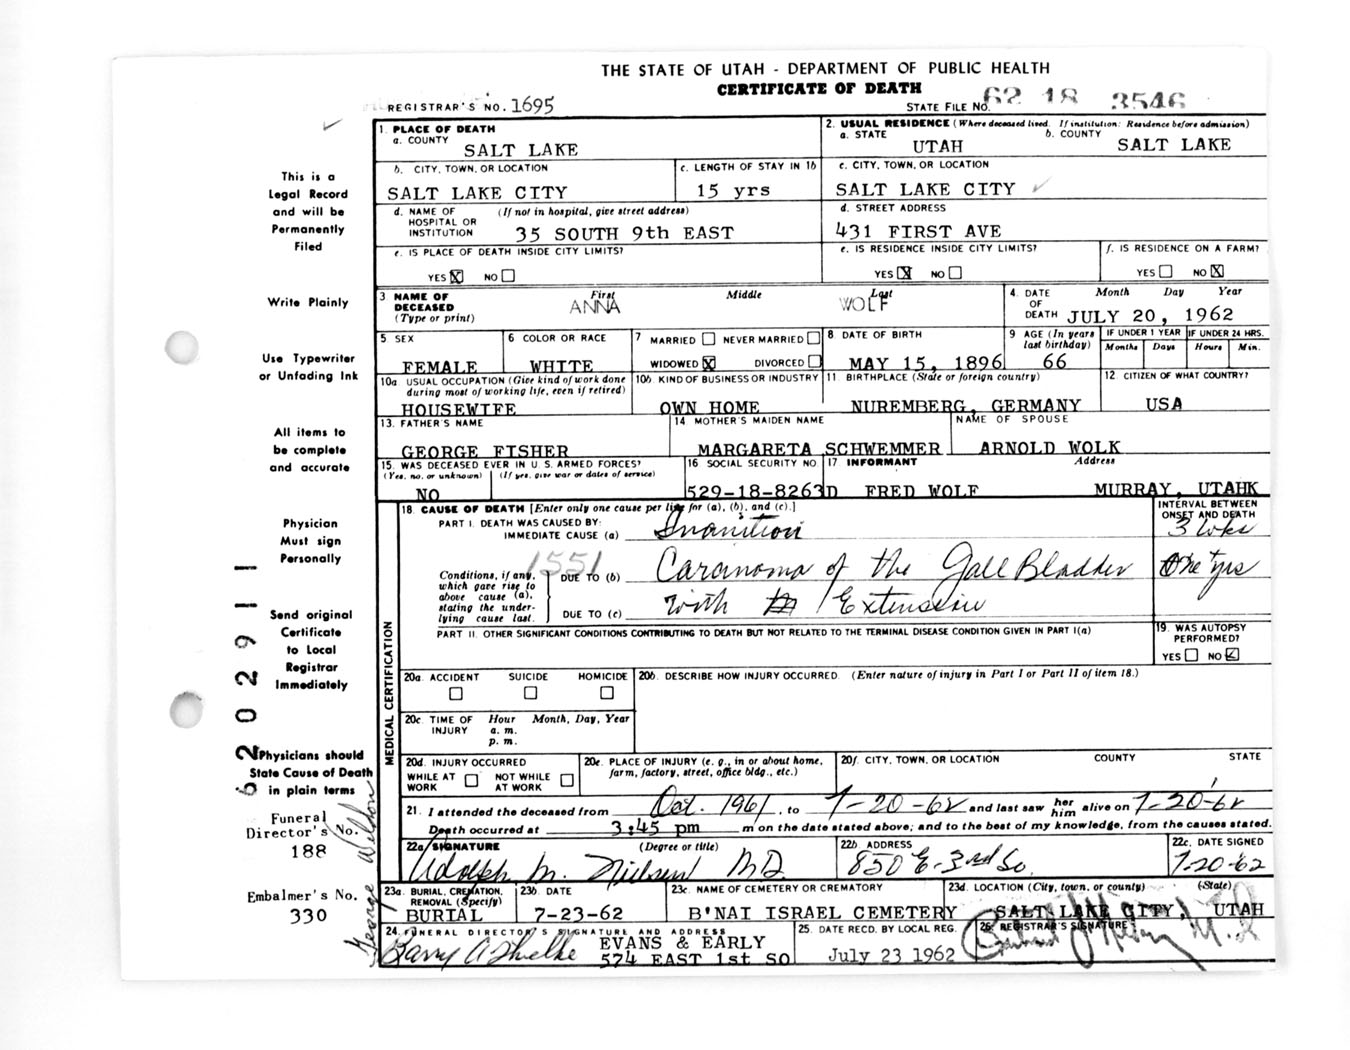 THE STATE OF UTAH - DEPARTMENT OF PUBLIC HEALTH
CERTIFICATE OF DEATH
REGISTRAR'S NO. 1695
STATE FILE NO. 62 18 3546
This is a
Legal Record
and will be
Permanently
Filed
Write Plainly
Use Typewriter
or Unfading Ink
All items to
be complete
and accurate
Physician
Must sign
Personally
Send original
Certificate
to Local
Registrar
Immediately
Physicians should
State Cause of Death
in plain terms
Funeral
Director's No.
188
Embalmer's No.
330
George Welton
62 0 29 1 1
1. PLACE OF DEATH
a. COUNTY
SALT LAKE
2. USUAL RESIDENCE (Where deceased lived. If institution: Residence before admission)
a. STATE b. COUNTY
UTAH SALT LAKE
b. CITY, TOWN, OR LOCATION c. LENGTH OF STAY IN 1b c. CITY, TOWN, OR LOCATION
SALT LAKE CITY 15 yrs SALT LAKE CITY
d. NAME OF HOSPITAL OR INSTITUTION (If not in hospital, give street address) d. STREET ADDRESS
35 SOUTH 9th EAST 431 FIRST AVE
e. IS PLACE OF DEATH INSIDE CITY LIMITS? e. IS RESIDENCE INSIDE CITY LIMITS? f. IS RESIDENCE ON A FARM?
YES X NO YES X NO YES NO X
3 NAME OF DECEASED (Type or print) First Middle Last
ANNA WOLF
4. DATE OF DEATH Month Day Year
JULY 20, 1962
5 SEX 6 COLOR OR RACE 7 MARRIED NEVER MARRIED WIDOWED X DIVORCED 8 DATE OF BIRTH 9 AGE (In years last birthday) IF UNDER 1 YEAR IF UNDER 24 HRS.
Months Days Hours Min.
FEMALE WHITE MAY 15, 1896 66
10a USUAL OCCUPATION (Give kind of work done during most of working life, even if retired) 10b. KIND OF BUSINESS OR INDUSTRY 11 BIRTHPLACE (State or foreign country) 12 CITIZEN OF WHAT COUNTRY?
HOUSEWIFE OWN HOME NUREMBERG, GERMANY USA
13. FATHER'S NAME 14 MOTHER'S MAIDEN NAME NAME OF SPOUSE
GEORGE FISHER MARGARETA SCHWEMMER ARNOLD WOLK
15. WAS DECEASED EVER IN U.S. ARMED FORCES? 16 SOCIAL SECURITY NO 17 INFORMANT Address
(Yes, no, or unknown) (If yes, give war or dates of service)
NO 529-18-8263D FRED WOLF MURRAY, UTAHK
18. CAUSE OF DEATH [Enter only one cause per line for (a), (b), and (c).] INTERVAL BETWEEN ONSET AND DEATH
PART I. DEATH WAS CAUSED BY:
IMMEDIATE CAUSE (a) Inanition 3 wks
1551
Conditions, if any, which gave rise to above cause (a), stating the underlying cause last.
DUE TO (b) Carcinoma of the Gall Bladder One yrs
DUE TO (c) with Extension
PART II. OTHER SIGNIFICANT CONDITIONS CONTRIBUTING TO DEATH BUT NOT RELATED TO THE TERMINAL DISEASE CONDITION GIVEN IN PART I(a)
19. WAS AUTOPSY PERFORMED?
YES NO
MEDICAL CERTIFICATION
20a. ACCIDENT SUICIDE HOMICIDE 20b. DESCRIBE HOW INJURY OCCURRED. (Enter nature of injury in Part I or Part II of item 18.)
20c. TIME OF INJURY Hour Month, Day, Year
a. m.
p. m.
20d. INJURY OCCURRED
WHILE AT WORK NOT WHILE AT WORK
20e. PLACE OF INJURY (e. g., in or about home, farm, factory, street, office bldg., etc.)
20f. CITY, TOWN, OR LOCATION COUNTY STATE
21. I attended the deceased from Oct. 1961, to 7-20-62 and last saw her him alive on 7-20-62
Death occurred at 3:45 pm m on the date stated above; and to the best of my knowledge, from the causes stated.
22a SIGNATURE (Degree or title) 22b ADDRESS 22c. DATE SIGNED
Adolph M. Nielsen MD 850 E-3rd So. 7-20-62
23a. BURIAL, CREMATION, REMOVAL (Specify) 23b. DATE 23c. NAME OF CEMETERY OR CREMATORY 23d. LOCATION (City, town, or county) (State)
BURIAL 7-23-62 B'NAI ISRAEL CEMETERY SALT LAKE CITY, UTAH
24. FUNERAL DIRECTOR'S SIGNATURE AND ADDRESS 25. DATE RECD. BY LOCAL REG. 26. REGISTRAR'S SIGNATURE
EVANS & EARLY
574 EAST 1st SO July 23 1962